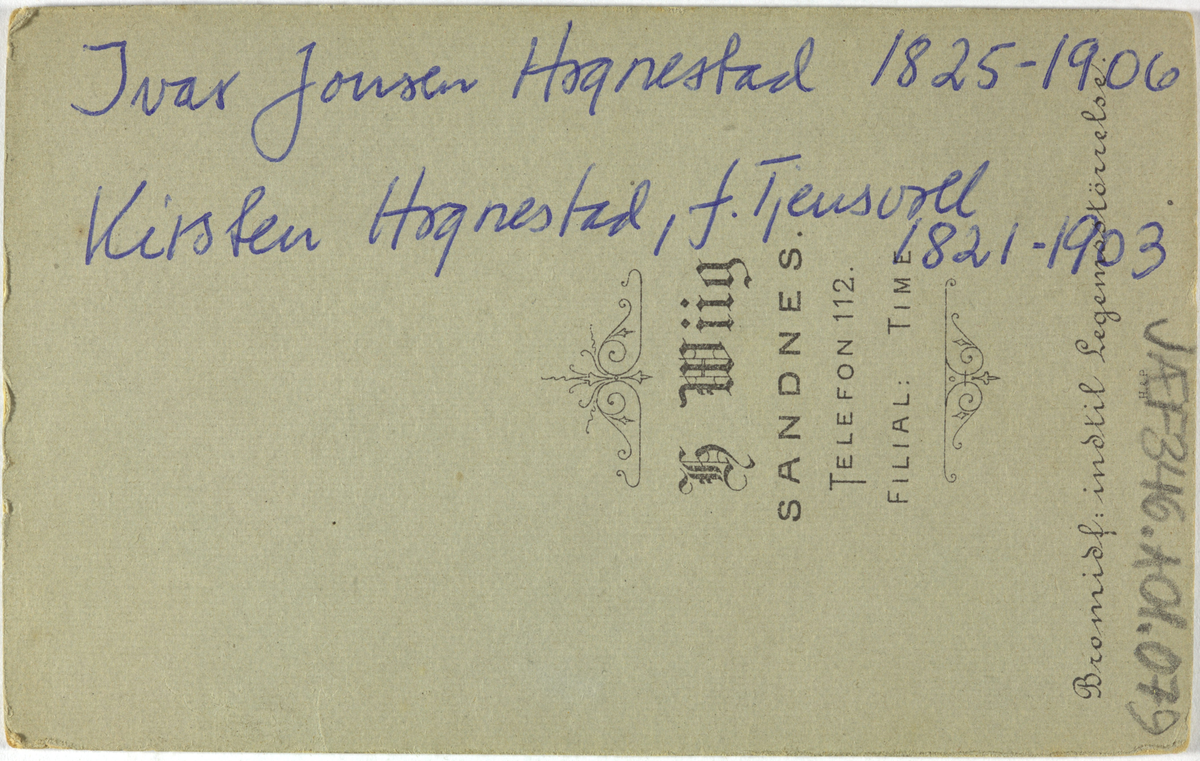 Ivar Jonsen Hognestad 1825-1906
Kirsten Hognestad, f. Tjensvoll
1821-1903
H Wiig
SANDNES.
TELEFON 112.
FILIAL: TIME
Bromidf: indtil Legemsstörrelse.
JÆF346.101.079